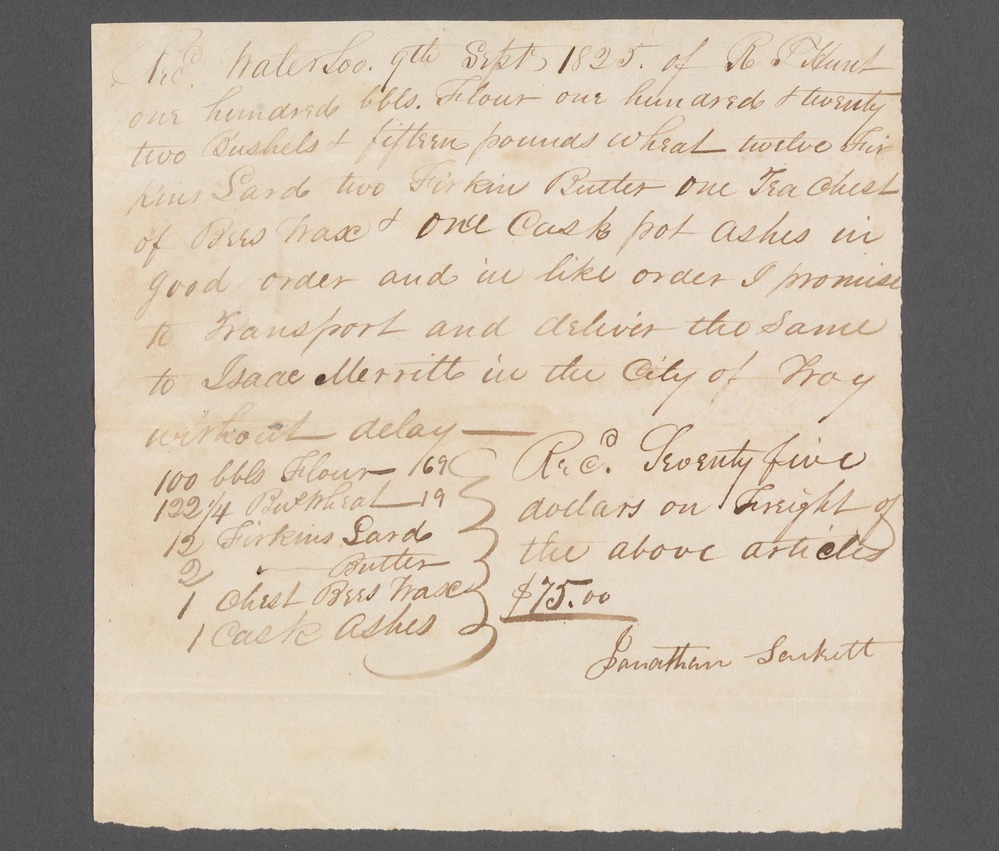 Rec'd. Waterloo. 9th Sept 1825. of R P Hunt
one hundred bbls. Flour one hundred & twenty
two Bushels & fifteen pounds wheat twelve Fir
kins Lard two Firkin Butter one Tea Chest
of Bees Wax & one Cask pot ashes in
good order and in like order I promise
to Transport and deliver the Same
to Isaac Merritt in the City of Troy
without delay —
100 bbls Flour 169
122 1/4 Bu Wheat 19
12 Firkins Lard
2 " Butter
1 Chest Bees Wax
1 Cask Ashes
Rec'd. Seventy five
dollars on Freight of
the above articles
$75.00
Jonathan Sackett